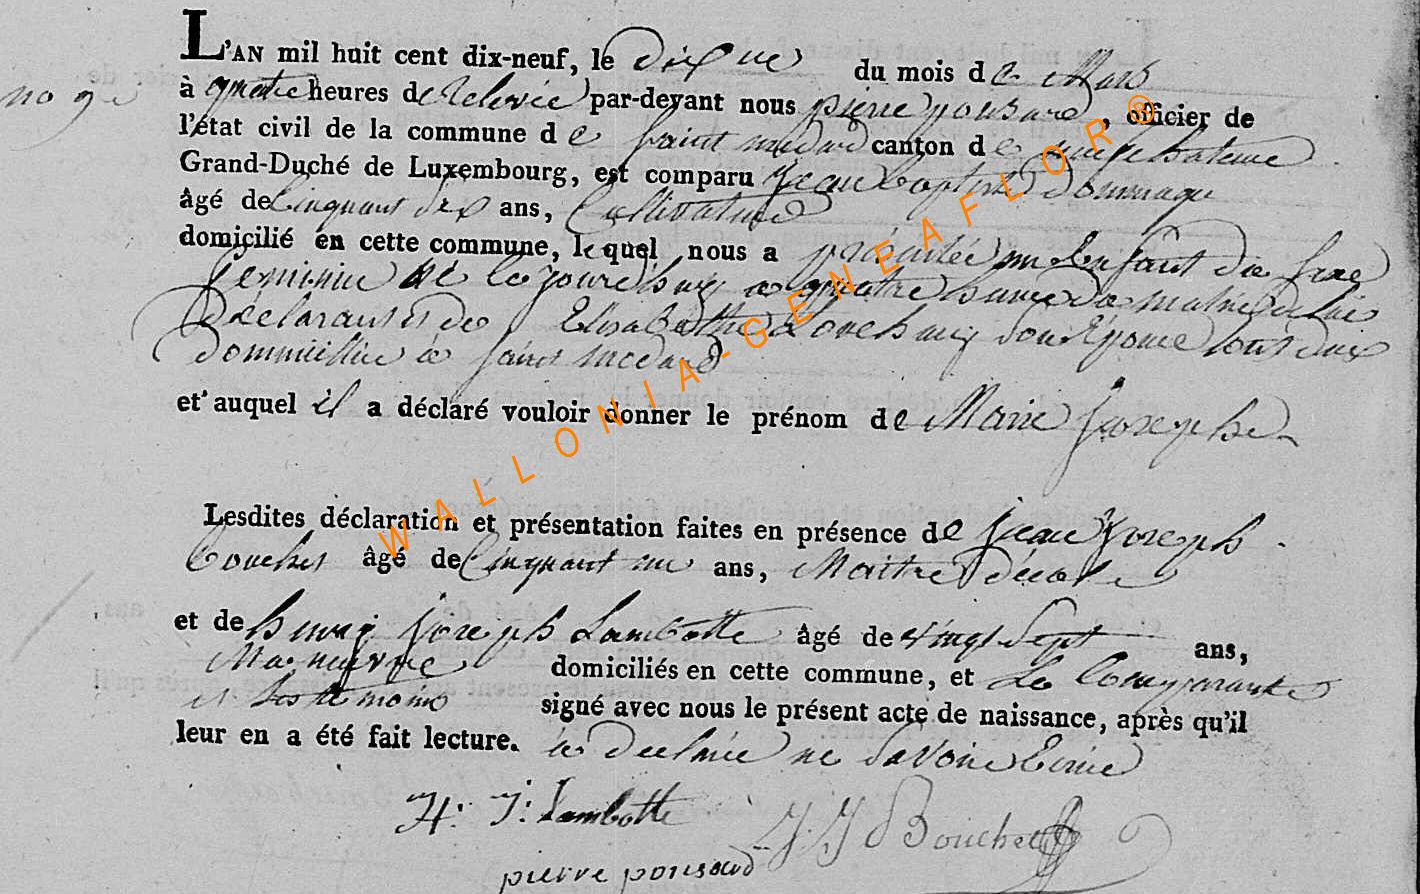 L'AN mil huit cent dix-neuf, le dix du mois de Mars
no 9
à quatre heures de Relevée par-devant nous pierre ponsard, officier de
l'état civil de la commune de saint medard canton de
Grand-Duché de Luxembourg, est comparu Jean baptiste Dommage
âgé de Cinquant dex ans, Cultivateur
domicilié en cette commune, lequel nous a présentée un Enfant du sexe
feminin né le jourdhuy a quatre heures du matin de lui
Déclarant et de Elisabethe Louchang son Epouse tout deux
Dommicilie à saint medard
et auquel il a déclaré vouloir donner le prénom de Marie Josephe
Lesdites déclaration et présentation faites en présence de Jean Joseph
bouchet âgé de Cinquant un ans, Maitre d'école
et de henry Joseph Lambotte âgé de vingt Sept ans,
Maneuvre domiciliés en cette commune, et Le Comparant
et les temoins signé avec nous le présent acte de naissance, après qu'il
leur en a été fait lecture. à declarée ne Savoir Ecrire
H: J: Lambotte
J J Bouchet
pierre ponsard
WALLONIA-GENEAFLOR®